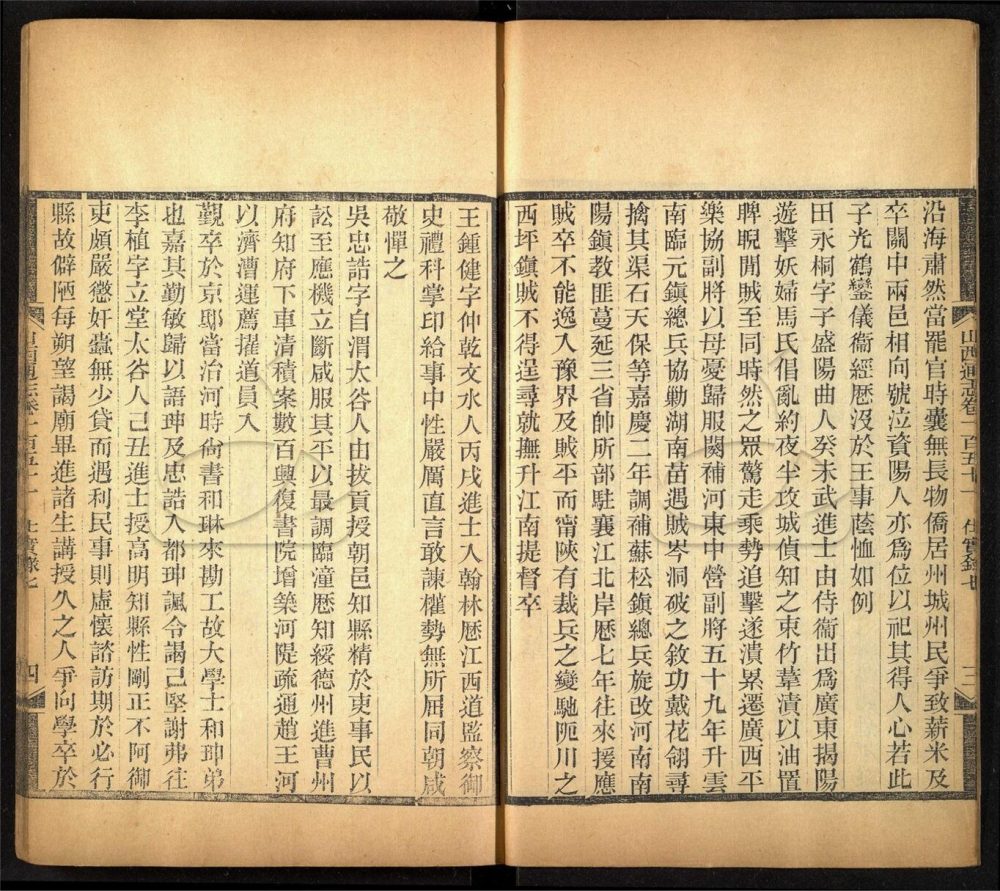 沿海肅然當罷官時囊無長物僑居州城州民爭致薪米及
卒關中兩邑相向號泣資陽人亦爲位以祀其得人心若此
子光鶴鑾儀衞經歷沒於王事蔭恤如例
田永桐字子盛陽曲人癸未武進士由侍衞出爲廣東揭陽
遊擊妖婦馬氏倡亂約夜半攻城偵知之束竹葦漬以油置
睥睨閒賊至同時然之眾驚走乘勢追擊遂潰累遷廣西平
樂協副將以母憂歸服闋補河東中營副將五十九年升雲
南臨元鎭總兵協勦湖南苗遇賊岑洞破之敘功戴花翎尋
擒其渠石天保等嘉慶二年調補蘇松鎭總兵旋改河南南
陽鎭教匪蔓延三省帥所部駐襄江北岸歷七年往來援應
賊卒不能逸入豫界及賊平而甯陝有裁兵之變馳阨川之
西坪鎭賊不得逞尋就撫升江南提督卒
山西通志卷一百五十一 仕實錄七 三
王鍾健字仲乾文水人丙戌進士入翰林歷江西道監察御
史禮科掌印給事中性嚴厲直言敢諫權勢無所屈同朝咸
敬憚之
吳忠誥字自渭太谷人由拔貢授朝邑知縣精於吏事民以
訟至應機立斷咸服其平以最調臨潼歷知綏德州進曹州
府知府下車清積案數百興復書院增築河隄疏通趙王河
以濟漕運薦擢道員入
覲卒於京邸當治河時尙書和琳來勘工故大學士和珅弟
也嘉其勤敏歸以語珅及忠誥入都珅諷令謁己堅謝弗往
李植字立堂太谷人己丑進士授高明知縣性剛正不阿御
吏頗嚴懲奸蠹無少貸而遇利民事則虛懷諮訪期於必行
縣故僻陋每朔望謁廟畢進諸生講授久之人爭向學卒於
四